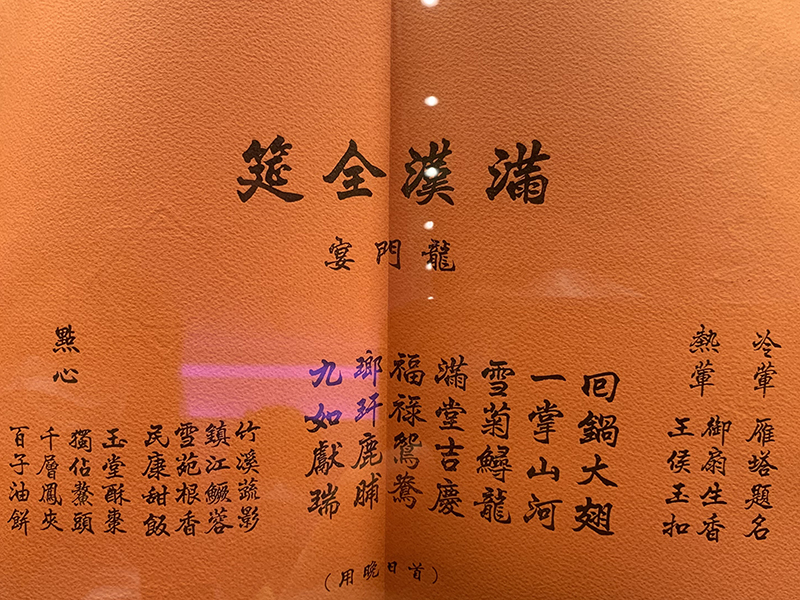 滿漢全筵
龍門宴
冷葷 雁塔題名
熱葷 御扇生香
王侯玉扣
回鍋大翅
一掌山河
雪菊鱘龍
滿堂吉慶
福祿鴛鴦
瑯玕鹿脯
九如獻瑞
竹溪蔬影
鎮江鱖蓉
雪苑根香
民康甜飯
點心 玉堂酥棗
獨佔鰲頭
千層鳳夾
百子油餅
(首日晚用)